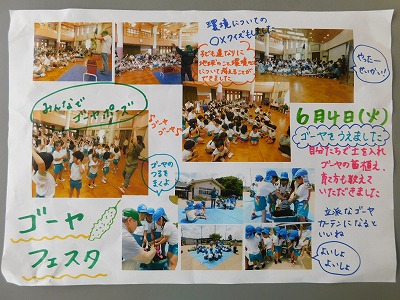 環境についての
〇×クイズもしました
子ども達なりに
地球のこと環境のこと
について考えることが
できました
やったー
せいかい!
みんなで
ゴーヤポーズ
ゴーヤ
ゴーヤ
ゴーヤの
つるを
まくよ
6月4日(火)
ゴーヤをうえました
自分たちで土を入れ
ゴーヤの苗植え、
育て方も教えて
いただきました
立派なゴーヤ
カーテンになると
いいね
よいしょ
よいしょ
ゴーヤ
フェスタ